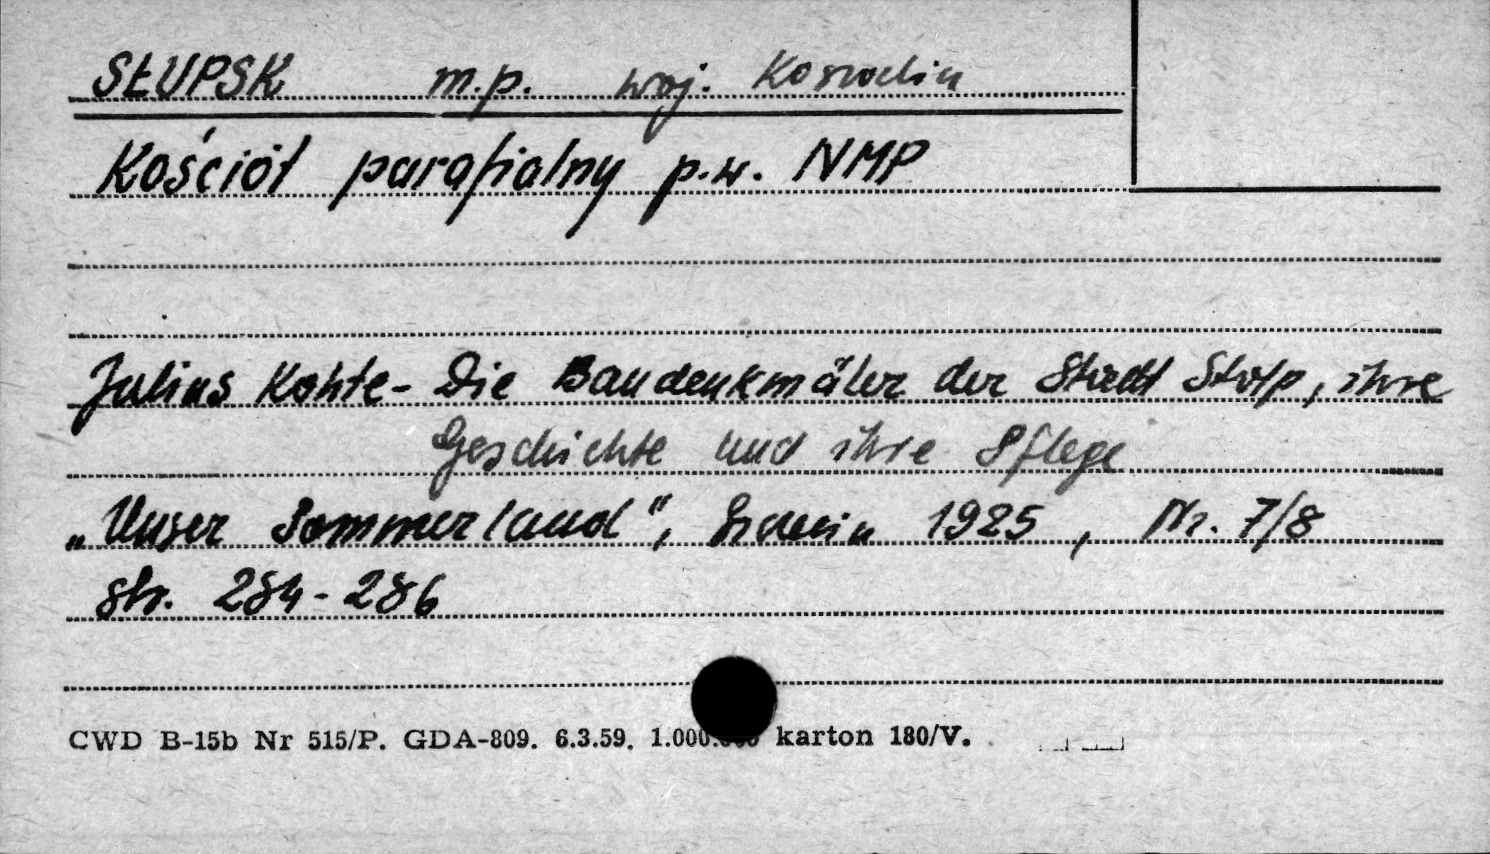 SŁUPSK m.p. woj. Koszalin
Kościół parafialny p.w. NMP
Julius Kohte - Die Baudenkmäler der Stadt Stolp, ihre
Geschichte und ihre Pflege
„Unser Pommerland", Szczecin 1925, Nr. 7/8
str. 284-286
CWD B-15b Nr 515/P. GDA-809. 6.3.59. 1.000.000 karton 180/V.